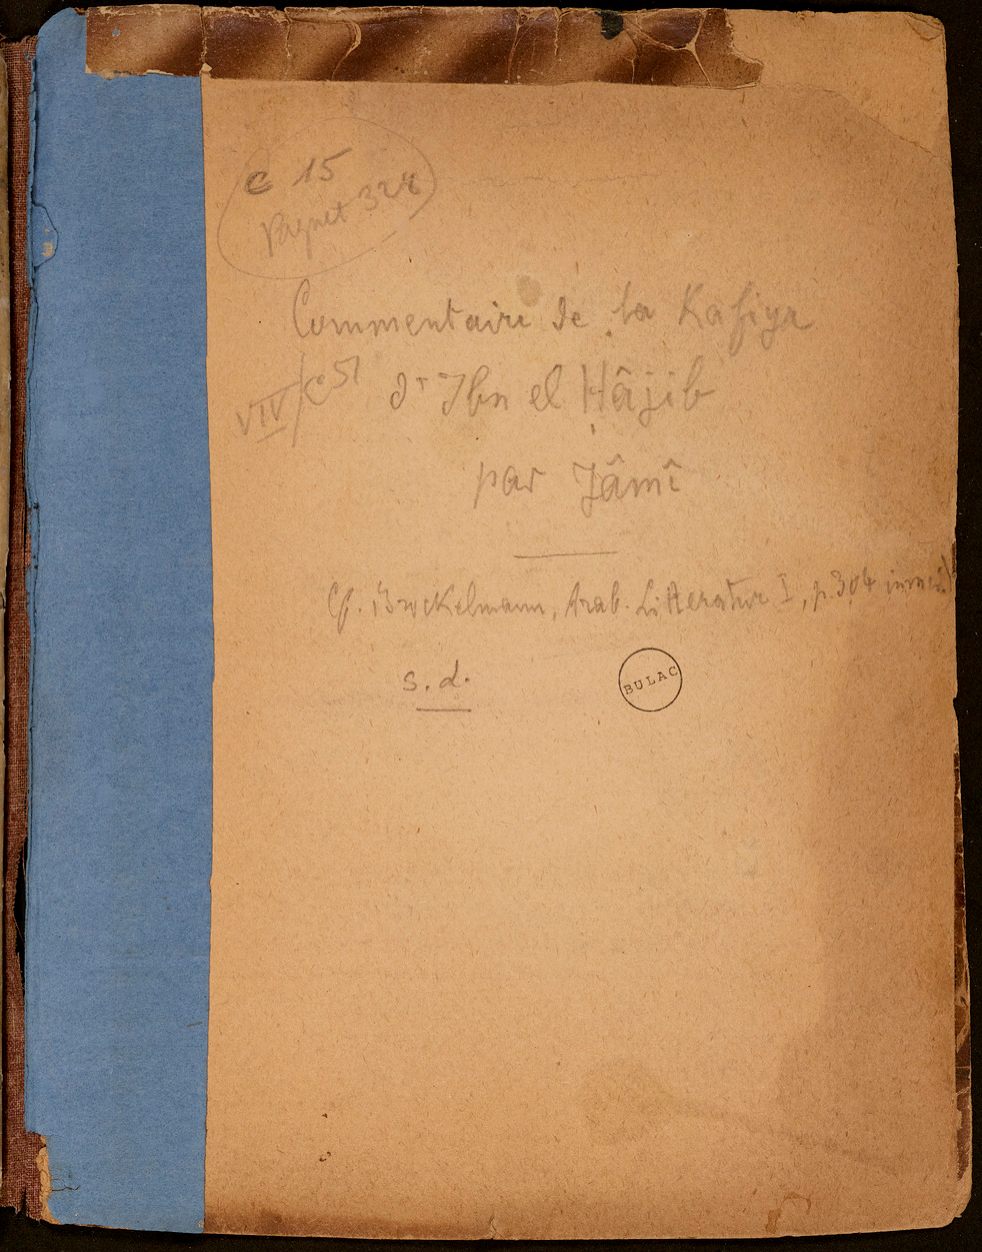 C 15
Paquet 328
Commentaire de la Kafiya
VIV/C51
d' Ibn el Hâjib
par Jâmî
Cf. Brockelmann, Arab. Litteratur I, p. 304
s. d.
BULAC